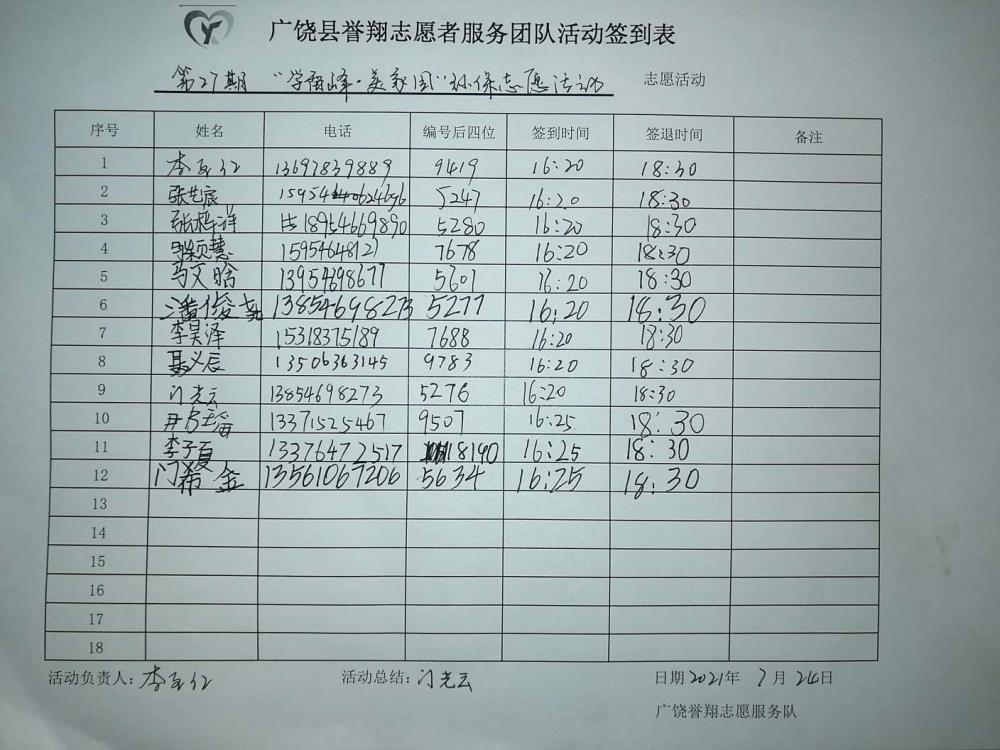 广饶县誉翔志愿者服务团队活动签到表
第27期 "学雷峰·美家园"环保志愿活动 志愿活动
序号 姓名 电话 编号后四位 签到时间 签退时间 备注
1 李 13697839889 9419 16:20 18:30
2 张艺宸 5247 16:20 18:30
3 张 18954669890 5280 16:20 18:30
4 15954648127 7678 16:20 18:30
5 马文晗 13954698677 5601 16:20 18:30
6 潘俊尧 13854698273 5277 16:20 18:30
7 李昊泽 15318375189 7688 16:20 18:30
8 聂义辰 13506363145 9783 16:20 18:30
9 门光云 13854698273 5276 16:20 18:30
10 13371525467 9507 16:25 18:30
11 李子夏 13376472517 18190 16:25 18:30
12 门希金 13561067206 5634 16:25 18:30
13
14
15
16
17
18
活动负责人: 李 活动总结: 门光云 日期2021年 7月 24日
广饶誉翔志愿服务队